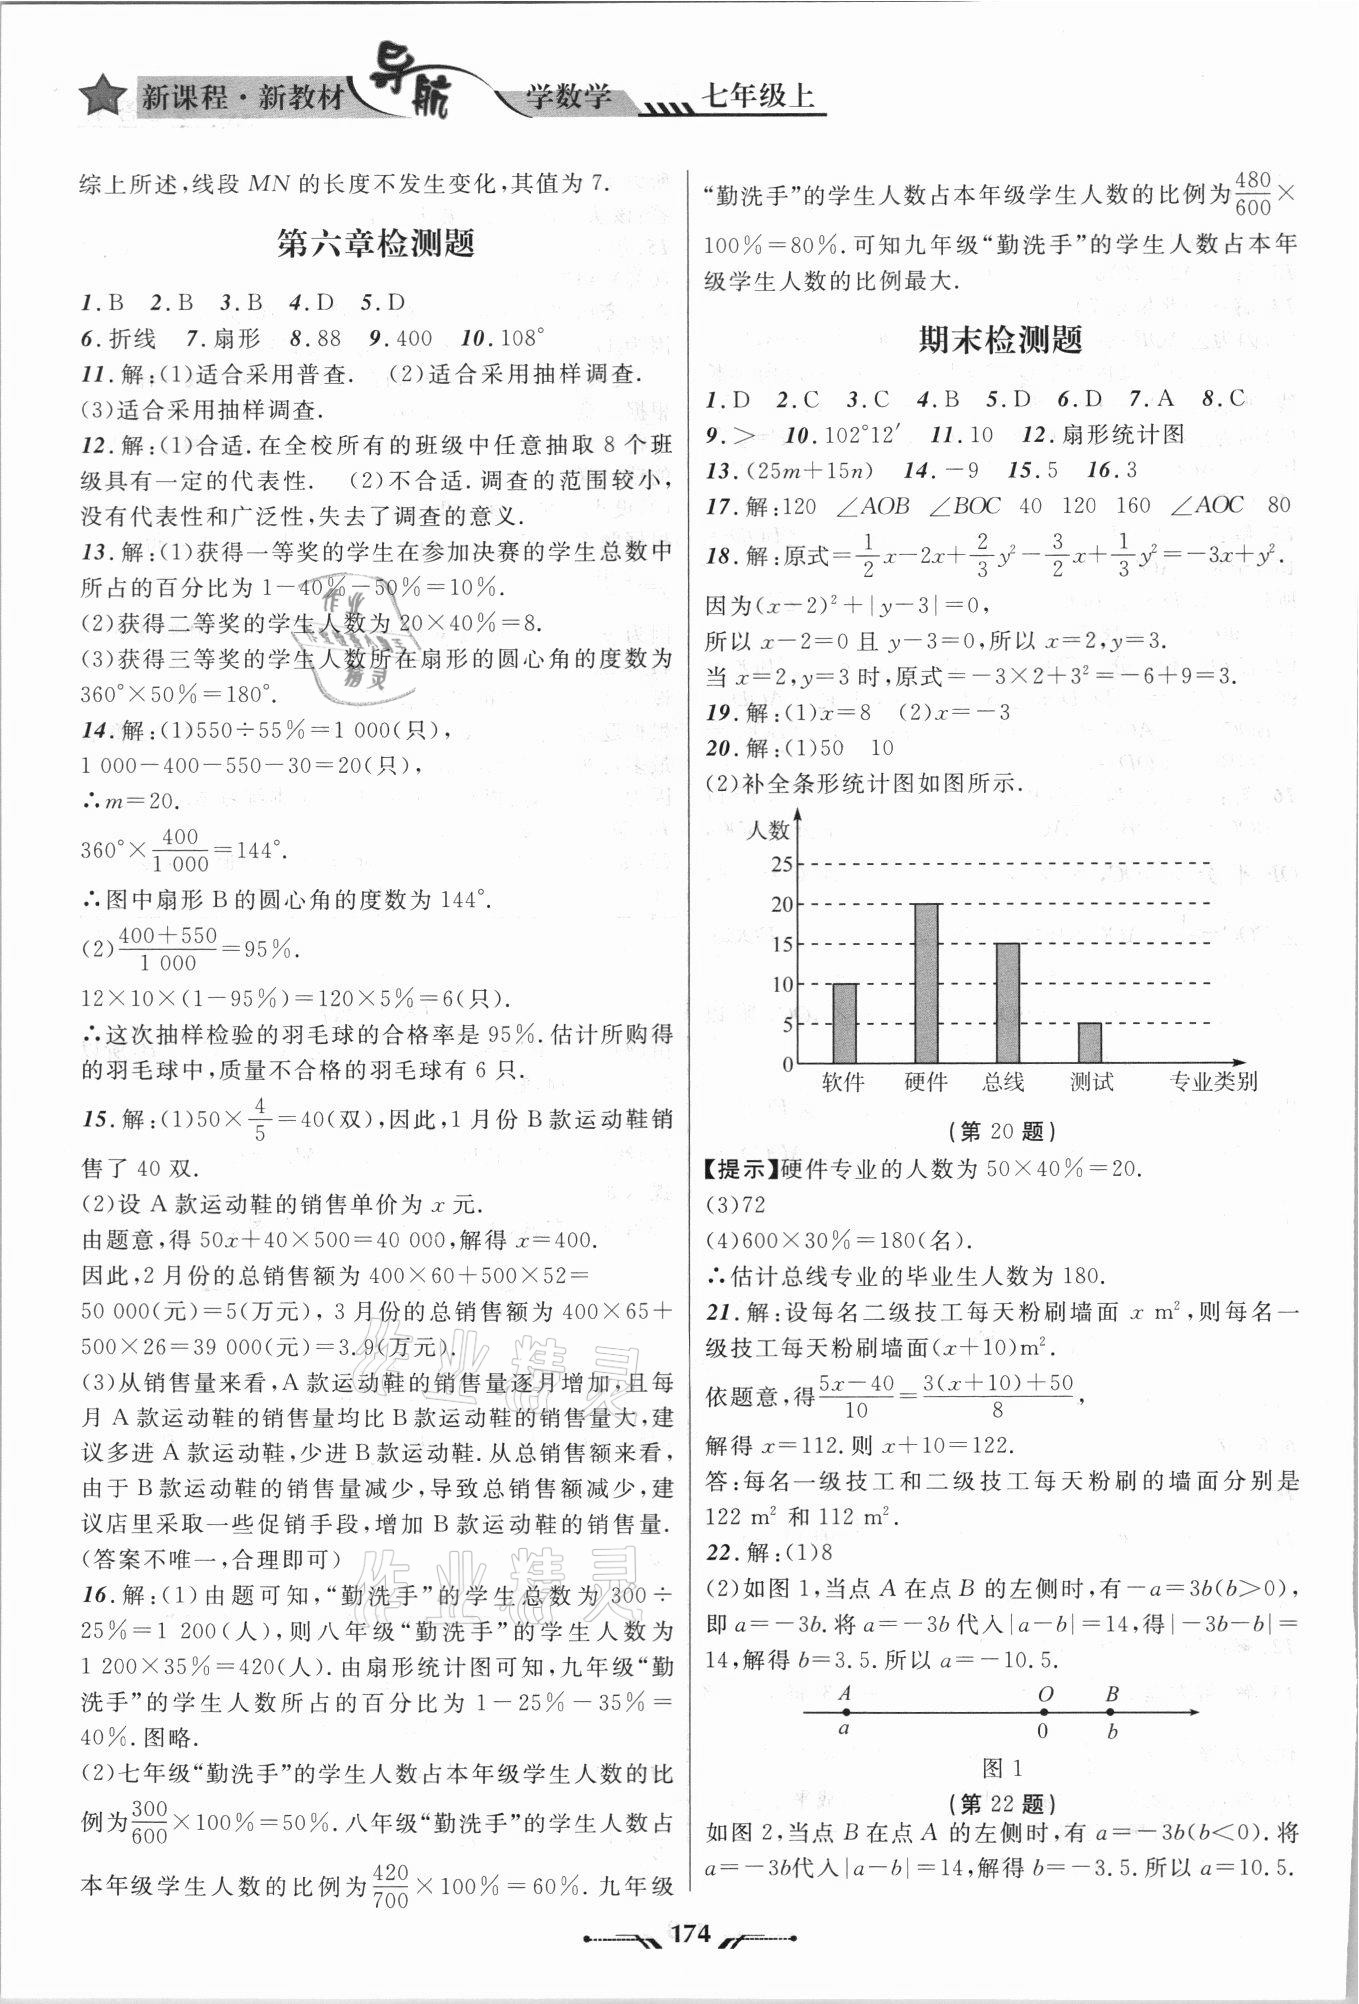 新课程·新教材 导航 学数学 七年级上
综上所述,线段 MN 的长度不发生变化,其值为 7.
第六章检测题
1.B 2.B 3.B 4.D 5.D
6.折线 7.扇形 8.88 9.400 10.108°
11.解:(1)适合采用普查. (2)适合采用抽样调查.
(3)适合采用抽样调查.
12.解:(1)合适.在全校所有的班级中任意抽取 8 个班
级具有一定的代表性. (2)不合适.调查的范围较小,
没有代表性和广泛性,失去了调查的意义.
13.解:(1)获得一等奖的学生在参加决赛的学生总数中
所占的百分比为 1-40%-50%=10%.
(2)获得二等奖的学生人数为 20×40%=8.
(3)获得三等奖的学生人数所在扇形的圆心角的度数为
360°×50%=180°.
14.解:(1)550÷55%=1 000(只),
1 000-400-550-30=20(只),
∴m=20.
360°×400/1 000=144°.
∴图中扇形 B 的圆心角的度数为 144°.
(2)(400+550)/1 000=95%.
12×10×(1-95%)=120×5%=6(只).
∴这次抽样检验的羽毛球的合格率是 95%.估计所购得
的羽毛球中,质量不合格的羽毛球有 6 只.
15.解:(1)50×4/5=40(双),因此,1 月份 B 款运动鞋销
售了 40 双.
(2)设 A 款运动鞋的销售单价为 x 元.
由题意,得 50x+40×500=40 000,解得 x=400.
因此,2 月份的总销售额为 400×60+500×52=
50 000(元)=5(万元),3 月份的总销售额为 400×65+
500×26=39 000(元)=3.9(万元).
(3)从销售量来看,A 款运动鞋的销售量逐月增加,且每
月 A 款运动鞋的销售量均比 B 款运动鞋的销售量大,建
议多进 A 款运动鞋,少进 B 款运动鞋.从总销售额来看,
由于 B 款运动鞋的销售量减少,导致总销售额减少,建
议店里采取一些促销手段,增加 B 款运动鞋的销售量.
(答案不唯一,合理即可)
16.解:(1)由题可知,“勤洗手”的学生总数为 300÷
25%=1 200(人),则八年级“勤洗手”的学生人数为
1 200×35%=420(人).由扇形统计图可知,九年级“勤
洗手”的学生人数所占的百分比为 1-25%-35%=
40%.图略.
(2)七年级“勤洗手”的学生人数占本年级学生人数的比
例为300/600×100%=50%.八年级“勤洗手”的学生人数占
本年级学生人数的比例为420/700×100%=60%.九年级
“勤洗手”的学生人数占本年级学生人数的比例为480/600×
100%=80%.可知九年级“勤洗手”的学生人数占本年
级学生人数的比例最大.
期末检测题
1.D 2.C 3.C 4.B 5.D 6.D 7.A 8.C
9.> 10.102°12′ 11.10 12.扇形统计图
13.(25m+15n) 14.-9 15.5 16.3
17.解:120 ∠AOB ∠BOC 40 120 160 ∠AOC 80
18.解:原式=1/2x-2x+2/3y²-3/2x+1/3y²=-3x+y².
因为(x-2)²+|y-3|=0,
所以 x-2=0 且 y-3=0,所以 x=2,y=3.
当 x=2,y=3 时,原式=-3×2+3²=-6+9=3.
19.解:(1)x=8 (2)x=-3
20.解:(1)50 10
(2)补全条形统计图如图所示.
人数
25
20
15
10
5
0
软件 硬件 总线 测试 专业类别
(第 20 题)
【提示】硬件专业的人数为 50×40%=20.
(3)72
(4)600×30%=180(名).
∴估计总线专业的毕业生人数为 180.
21.解:设每名二级技工每天粉刷墙面 x m²,则每名一
级技工每天粉刷墙面(x+10)m².
依题意,得(5x-40)/10=(3(x+10)+50)/8,
解得 x=112.则 x+10=122.
答:每名一级技工和二级技工每天粉刷的墙面分别是
122 m² 和 112 m².
22.解:(1)8
(2)如图 1,当点 A 在点 B 的左侧时,有-a=3b(b>0),
即 a=-3b.将 a=-3b 代入|a-b|=14,得|-3b-b|=
14,解得 b=3.5.所以 a=-10.5.
A O B
a 0 b
图 1
(第 22 题)
如图 2,当点 B 在点 A 的左侧时,有 a=-3b(b<0).将
a=-3b代入|a-b|=14,解得 b=-3.5.所以 a=10.5.
174
作业精灵
作业精灵
作业
精灵